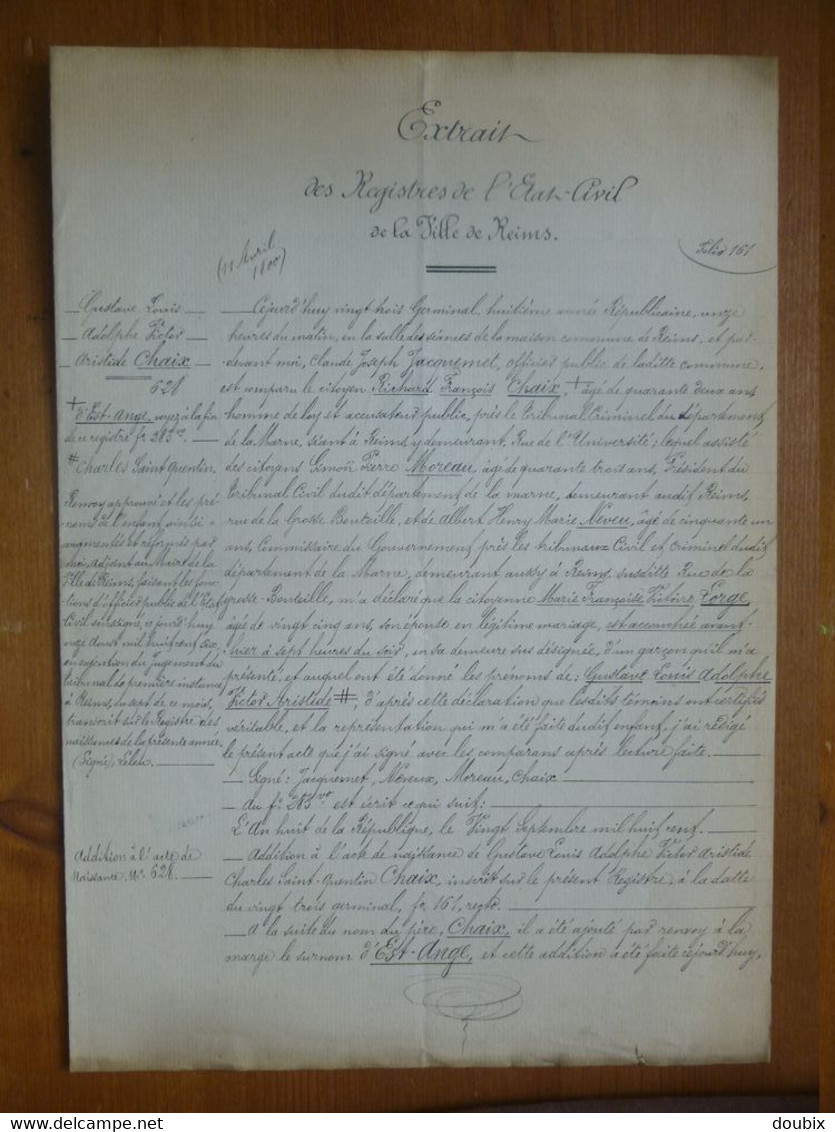 Extrait
des Registres de l'Etat-Civil
de la Ville de Reims.
(11 Avril
1800)
Folio 161
Gustave Louis
Adolphe Victor
Aristide Chaix
628
+
d'Est-Ange, voyez à la fin
de ce registre fo 283 vo.
# Charles Saint quentin.
Renvoy approuvé et les pré-
noms de l'enfant, ainsi
augmentés et réformés par
moi, adjoint au Maire de la
Ville de Reims, faisant les fonc-
tions d'officier public de l'Etat
Civil soussigné, ce jourd'huy
onze aoust mil huit cent six,
en exécution du Jugement du
tribunal de première instance
à Reims, du sept de ce mois,
transcrit sur le Registre des
naissances de la présente année,
(Signé), Leleu.
Addition à l'acte de
Naissance, No 628.
Cejourd'huy vingt trois Germinal, huitième année Républicaine, onze
heures du matin, en la salle des séances de la maison commune de Reims, et par-
devant moi, Claude Joseph Jacquemet, officier public de laditte commune,
est comparu le citoyen Richard François Chaix, + âgé de quarante deux ans
homme de loy et accusateur public, près le tribunal Criminel du département
de la Marne, séant à Reims y demeurant, Rue de l'Université; lequel assisté
des citoyens Simon Pierre Moreau, âgé de quarante trois ans, Président du
tribunal Civil dudit département de la marne, demeurant audit Reims,
rue de la Grosse Bouteille, et de Albert Henry Marie Neveu, âgé de cinquante un
ans, Commissaire du Gouvernement près les tribunaux Civil et criminel dudit
département de la Marne, demeurant aussy à Reims, susditte Rue de la
grosse-Bouteille, m'a déclaré que la citoyenne Marie Françoise Victoire Lorge,
âgée de vingt cinq ans, son épouse en légitime mariage, est accouchée avant-
hier à sept heures du soir, en sa demeure sus désignée, d'un garçon qu'il m'a
présenté, et auquel ont été donné les prénoms de; Gustave Louis Adolphe
Victor Aristide #, d'après cette déclaration que lesdits témoins ont certifiés
véritable, et la représentation qui m'a été faite dudit enfant, j'ai rédigé
le présent acte que j'ai signé avec les comparans après lecture faite.
Signé: Jacquemet, Neveux, Moreau, Chaix
au fo 283 vo est écrit ce qui suit:
L'An huit de la République, le Vingt Septembre mil huit cent.
Addition à l'acte de naissance de Gustave Louis Adolphe Victor Aristide
Charles Saint-Quentin Chaix, inscrit sur le présent Registre à la datte
du vingt trois germinal, fo 161, recto.
A la suite du nom du père, Chaix, il a été ajouté par renvoy à la
marge le surnom d'Est-Ange, et cette addition a été faite cejourd'huy,
delcampe.net
doubix